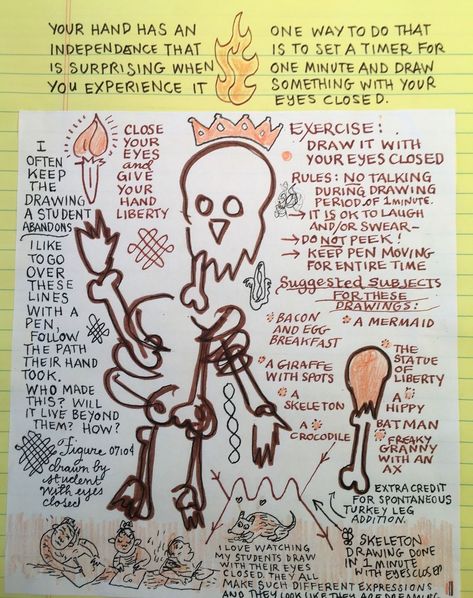 YOUR HAND HAS AN
INDEPENDANCE THAT
IS SURPRISING WHEN
YOU EXPERIENCE IT
ONE WAY TO DO THAT
IS TO SET A TIMER FOR
ONE MINUTE AND DRAW
SOMETHING WITH YOUR
EYES CLOSED.
I
OFTEN
KEEP
THE
DRAWING
A STUDENT
ABANDONS
I LIKE
TO GO
OVER
THESE
LINES
WITH A
PEN,
FOLLOW
THE PATH
THEIR HAND
TOOK.
WHO MADE
THIS? WILL
IT LIVE BEYOND
THEM? HOW?
Figure 07:04
drawn by
student
with eyes
closed
CLOSE
YOUR
EYES
and
GIVE
YOUR
HAND
LIBERTY
EXERCISE:
DRAW IT WITH
YOUR EYES CLOSED
RULES: NO TALKING
DURING DRAWING
PERIOD OF 1 MINUTE.
→ IT IS OK TO LAUGH
AND/OR SWEAR—
→ DO NOT PEEK!
→ KEEP PEN MOVING
FOR ENTIRE TIME
Suggested SUBJECTS
FOR THESE
DRAWINGS:
BACON
AND EGG
BREAKFAST
A GIRAFFE
WITH SPOTS
A
SKELETON
A
CROCODILE
A MERMAID
THE
STATUE
OF
LIBERTY
A
HIPPY
BATMAN
FREAKY
GRANNY
WITH AN
AX
EXTRA CREDIT
FOR SPONTANEOUS
TURKEY LEG
ADDITION.
SKELETON
DRAWING DONE
IN 1 MINUTE
WITH EYES CLOSED
I LOVE WATCHING
MY STUDENTS DRAW
WITH THEIR EYES
CLOSED. THEY ALL
MAKE SUCH DIFFERENT EXPRESSIONS
AND THEY LOOK LIKE THEY ARE DREAMING